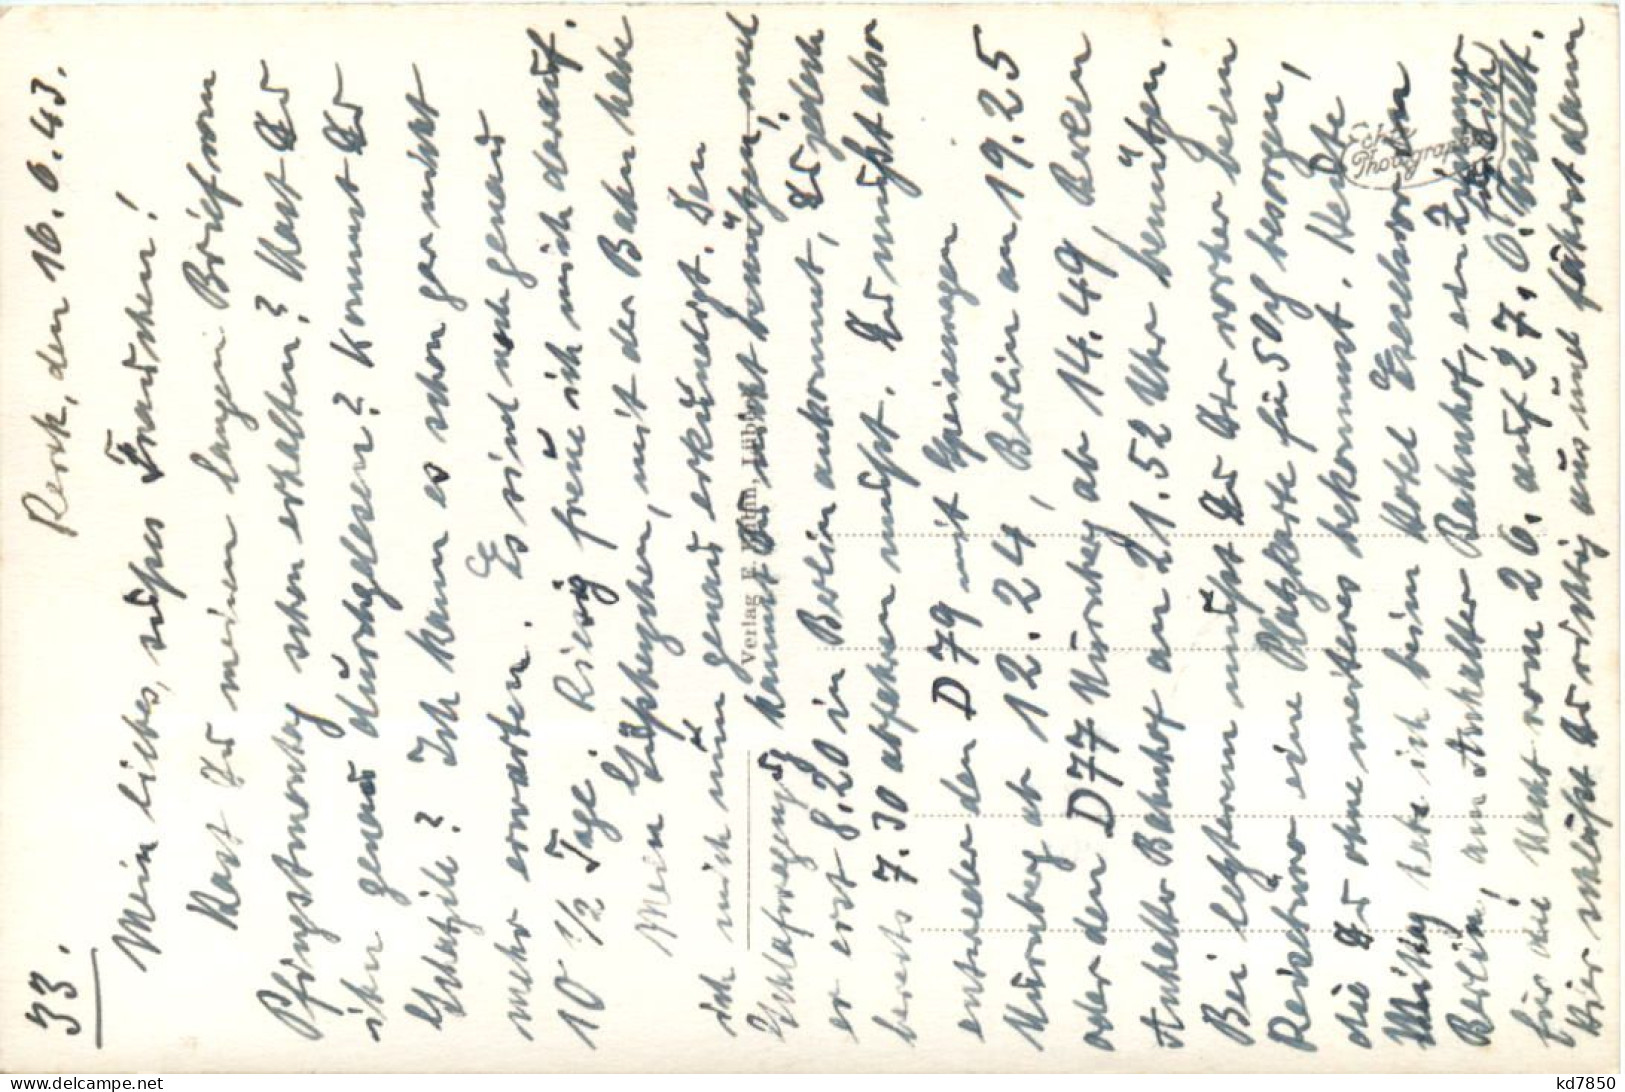 33.
Rerik, den 16.6.43.
Mein liebes, süßes Frauchen!
Hast Du meinen langen Brief von
Pfingstmontag schon erhalten? Hast Du
ihn genau durchgelesen? Kommst Du
Schatzile? Ich kann es schon gar nicht
mehr erwarten. Es sind noch genau
10 ½ Tage. Riesig freue ich mich darauf.
Mein Schätzchen, mit der Bahn habe
ich mich nun genau erkundigt. Den
Schlafwagenzug kannst Du nicht benützen, weil
er erst 8.20 in Berlin ankommt, Du jedoch
bereits 7.30 abfahren mußt. Du mußt also
entweder den D 79 mit Speisewagen
Nürnberg ab 12.24, Berlin an 19.25
oder den D 77 Nürnberg ab 14.49, Berlin
Anhalter Bahnhof an 21.52 Uhr benützen.
Bei letzterem mußt Du Dir vorher beim
Reisebüro eine Platzkarte für 50 Pf besorgen,
die Du ohne weiteres bekommst. Heute
Mittag habe ich beim Hotel Excelsior in
Berlin, am Anhalter Bahnhof, ein Zimmer für Dich
für die Nacht vom 26. auf 27.6. bestellt.
Hier schläfst Du richtig aus und fährst dann
Verlag E. , Lübben
Echte Photographie
kd7850